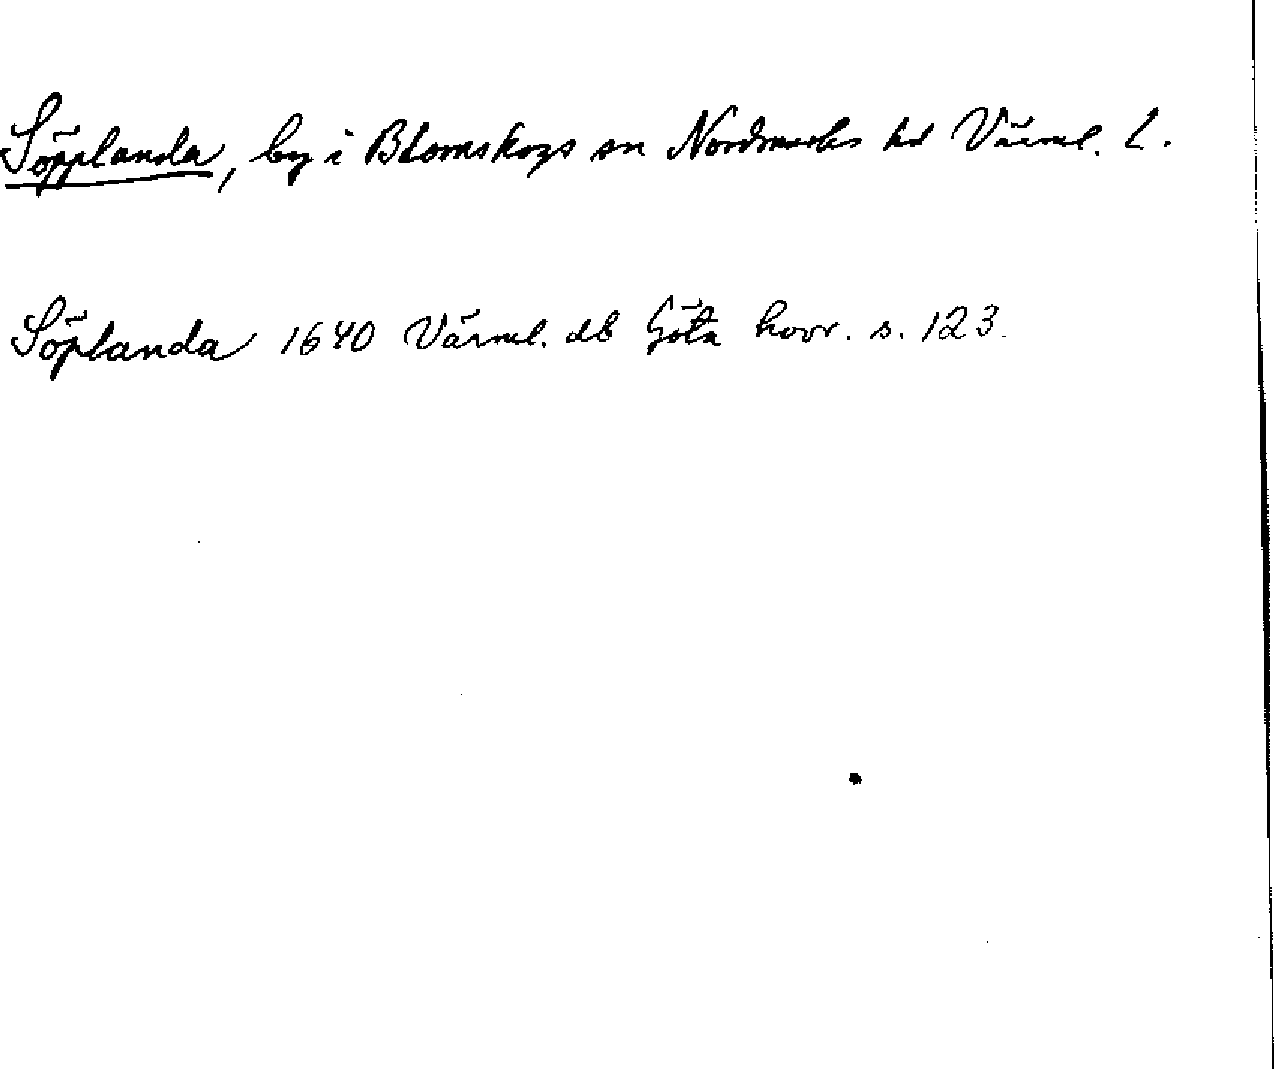 Söpplanda, by i Blomskogs sn Nordmarks hd Värml. l.
Söplanda 1640 Värml. db Göta hovr. s. 123.